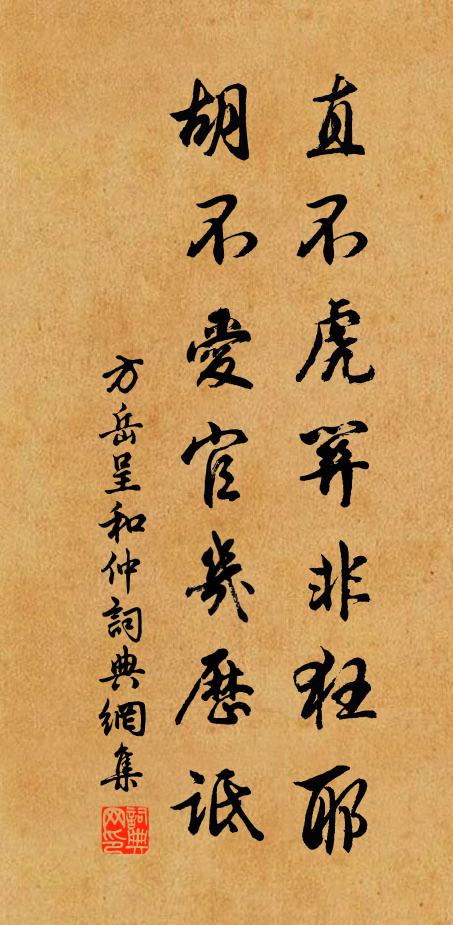 直不虎關非狂耶
胡不愛官幾歷詆
方岳呈和仲詞典網集
詞典网印